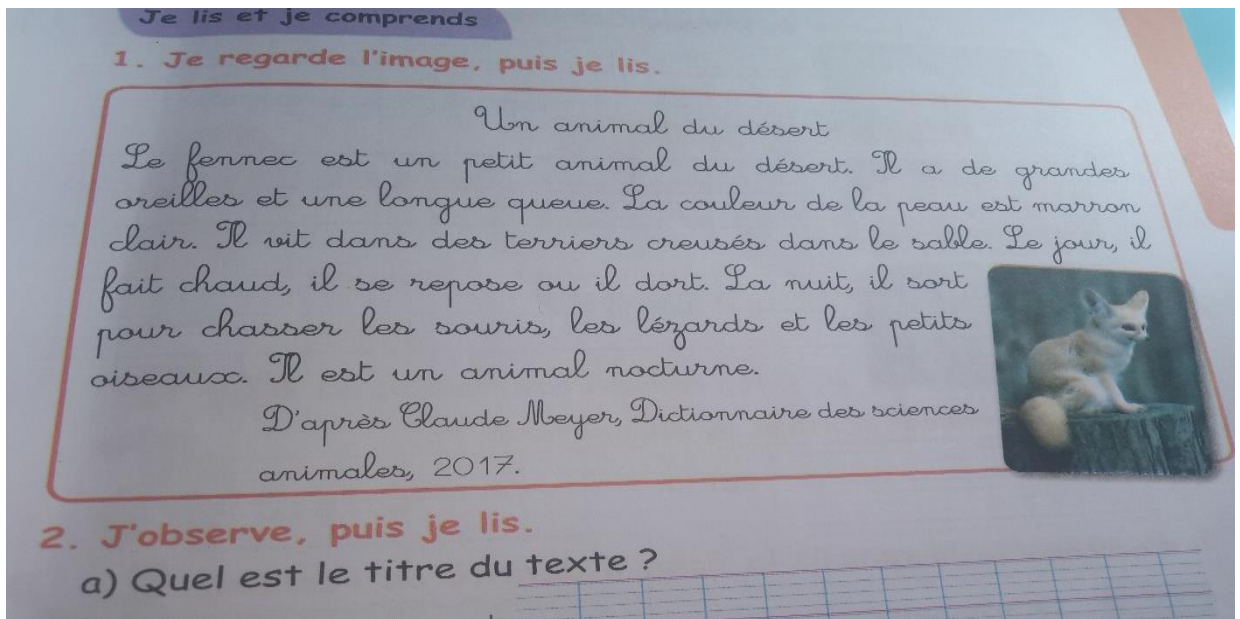 Je lis et je comprends
1. Je regarde l'image, puis je lis.
Un animal du désert
Le fennec est un petit animal du désert. Il a de grandes
oreilles et une longue queue. La couleur de la peau est marron
clair. Il vit dans des terriers creusés dans le sable. Le jour, il
fait chaud, il se repose ou il dort. La nuit, il sort
pour chasser les souris, les lézards et les petits
oiseaux. Il est un animal nocturne.
D'après Claude Meyer, Dictionnaire des sciences
animales, 2017.
2. J'observe, puis je lis.
a) Quel est le titre du texte ?